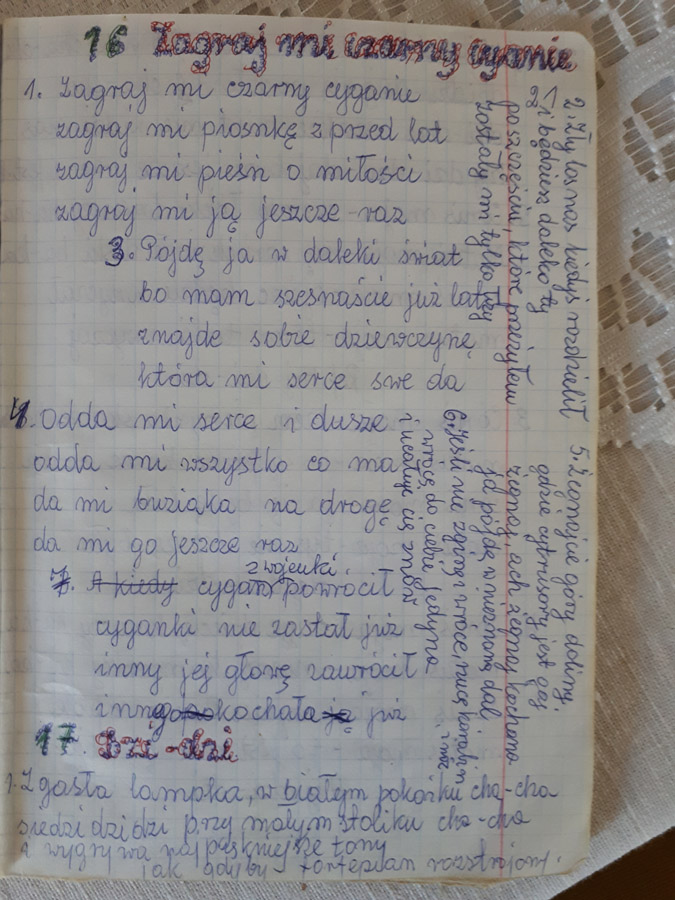 16 Zagraj mi czarny cyganie
1. Zagraj mi czarny cyganie
zagraj mi piosnkę z przed lat
zagraj mi pieśń o miłości
zagraj mi ją jeszcze raz
2. Zły los nas kiedyś rozdzielił
i będziesz daleko ty
po szczęściu, które przeżyłem
zostały mi tylko łzy
3. Pójdę ja w daleki świat
bo mam szesnaście już lat
znajdę sobie dziewczynę
która mi serce swe da
4. Odda mi serce i duszę
odda mi wszystko co ma
da mi buziaka na drogę
da mi go jeszcze raz
5. Żegnajcie góry doliny
gdzie cytrusowy jest gaj
żegnaj, ach żegnaj kochana
ja pójdę w nieznaną dal
6. Jeśli nie zginę i wrócę
wrócę do ciebie jedyna
i ucałuję cię znów
7. A kiedy cygan z wojenki powrócił
cyganki nie zastał już
inny jej głowę zawrócił
innego pokochała ją już
17. Dzi-dzi
1. Zgasła lampka, w białym pokoiku cha-cha
siedzi dzidzi przy małym stoliku cha-cha
i wygrywa najpiękniejsze tony
jak gdyby fortepian rozstrojony.